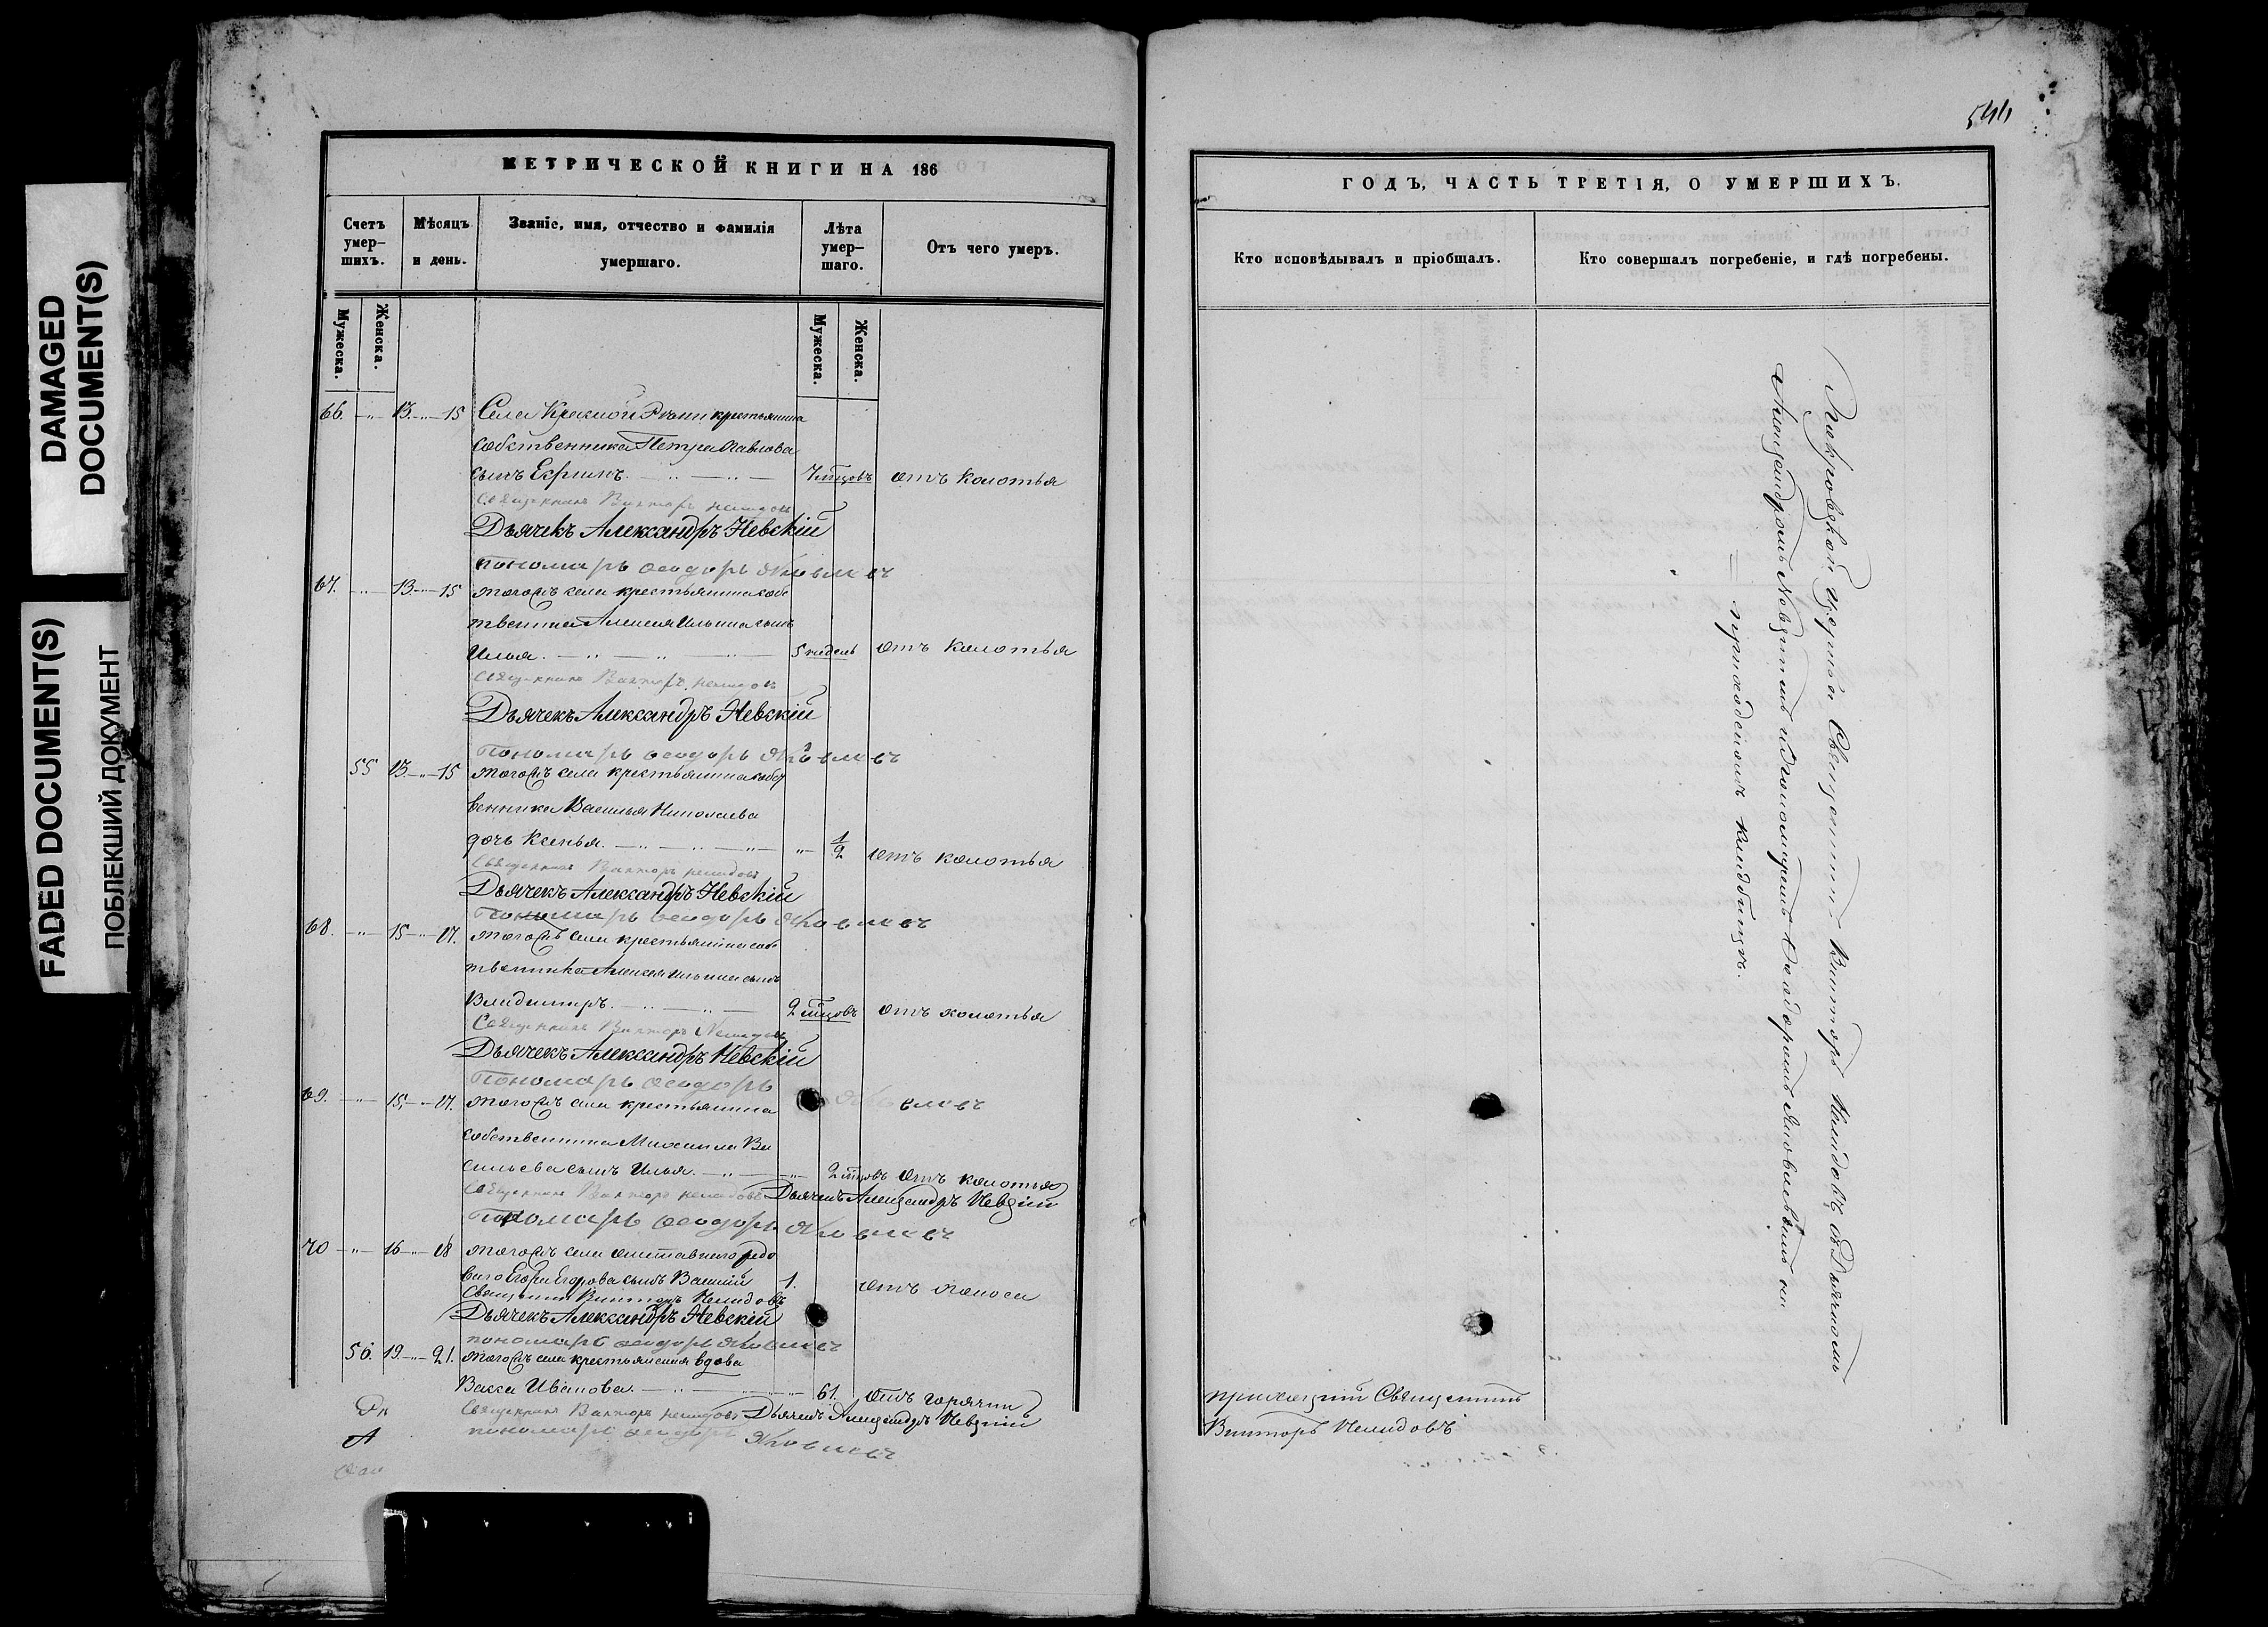 DAMAGED
DOCUMENT(S)
FADED DOCUMENT(S)
ПОБЛЕКШИЙ ДОКУМЕНТ
МЕТРИЧЕСКОЙ КНИГИ НА 186
Счетъ умер-
шихъ.
Мѣсяцъ
и день.
Званіе, имя, отчество и фамилія
умершаго.
Лѣта
умер-
шаго.
Отъ чего умеръ.
Мужеска.
Женска.
Мужеска.
Женска.
66. 13 15 Села Красной крестьянина
собственника Петра Павлова
сынъ Ефимъ. отъ колотья
Священникъ Викторъ Нелидовъ
Дьячекъ Александръ Невскій
Пономарь Ѳеодоръ Яковлевъ
67. 13 15 тогожъ села крестьянина собс
твенника Алексея Ильина сынъ
Илья. 5 недель отъ колотья
Священникъ Викторъ Нелидовъ
Дьячекъ Александръ Невскій
Пономарь Ѳеодоръ Яковлевъ
55 13 15 тогожъ села крестьянина собст
венника Василья Николаева
дочь Ксенья. 1/2 отъ колотья
Священникъ Викторъ Нелидовъ
Дьячекъ Александръ Невскій
Пономарь Ѳеодоръ Яковлевъ
68. 15 17. тогожъ села крестьянина собс
твенника Алексея Ильина сынъ
Владимиръ. 2 мцовъ отъ колотья
Священникъ Викторъ Нелидовъ
Дьячекъ Александръ Невскій
Пономарь Ѳеодоръ Яковлевъ
69. 15. 17. тогожъ села крестьянина
собственника Михаила Ва
сильева сынъ Илья. 2 мцовъ отъ колотья
Священникъ Викторъ Нелидовъ Дьячекъ Александръ Невскій
Пономарь Ѳеодоръ Яковлевъ
70 16 18 тогожъ села отставнаго рядо
ваго Егора Егорова сынъ Василій 1. отъ поноса
Священникъ Викторъ Нелидовъ
Дьячекъ Александръ Невскій
Пономарь Ѳеодоръ Яковлевъ
56. 19 21. тогожъ села крестьянская вдова
Васса Иванова. 61. отъ горячки
Священникъ Викторъ Нелидовъ Дьячекъ Александръ Невскій
Пономарь Ѳеодоръ Яковлевъ
544
ГОДЪ, ЧАСТЬ ТРЕТІЯ, О УМЕРШИХЪ.
Кто исповѣдывалъ и пріобщалъ.
Кто совершалъ погребеніе, и гдѣ погребены.
Покровской церкви Священникъ Викторъ Нелидовъ съ Дьячкомъ
Александромъ Невскимъ и Пономаремъ Ѳеодоромъ Яковлевымъ на
приходскомъ кладбищѣ.
приходскій Священникъ
Викторъ Нелидовъ